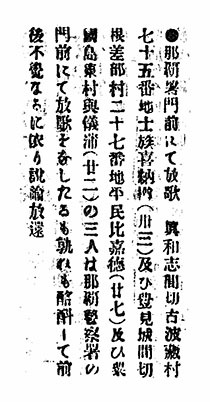 ●那覇署門前にて放歌　眞和志間切古波藏村
七十五番地士族喜納　(卅三)及ひ豊見城間切
根差部村二十七番地平民比嘉德(廿七)及ひ粟
國島東村與儀蒲(廿二)の三人は那覇警察署の
門前にて放歌をゐしたるも孰れも酩酊して前
後不覺なるに依り説諭放還